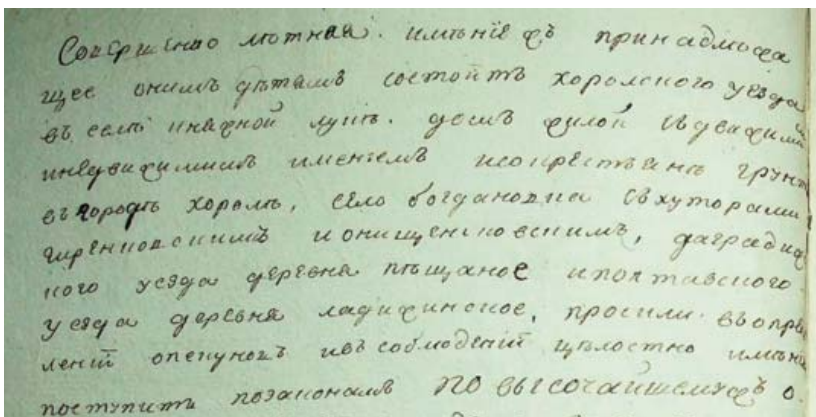 Совершенно лютная. имѣніе жъ принадлежа
щее онимъ дѣтямъ состоитъ хоролского уезда
въ селѣ кнажной лукѣ. домъ жилой съдвижими
инедвижимимъ именіемъ исокрестьяни грунт
въгородѣ хоролѣ, село богдановка съхуторами
и онищенковскимъ, даградиж
ного уезда деревня пѣщаное иполтавского
уезда деревня ладижинское, просили въопре
леніи опекуновъ ивъсоблюденіи цѣлостно имѣні
поступить позаконамъ по высочайшемужъ о